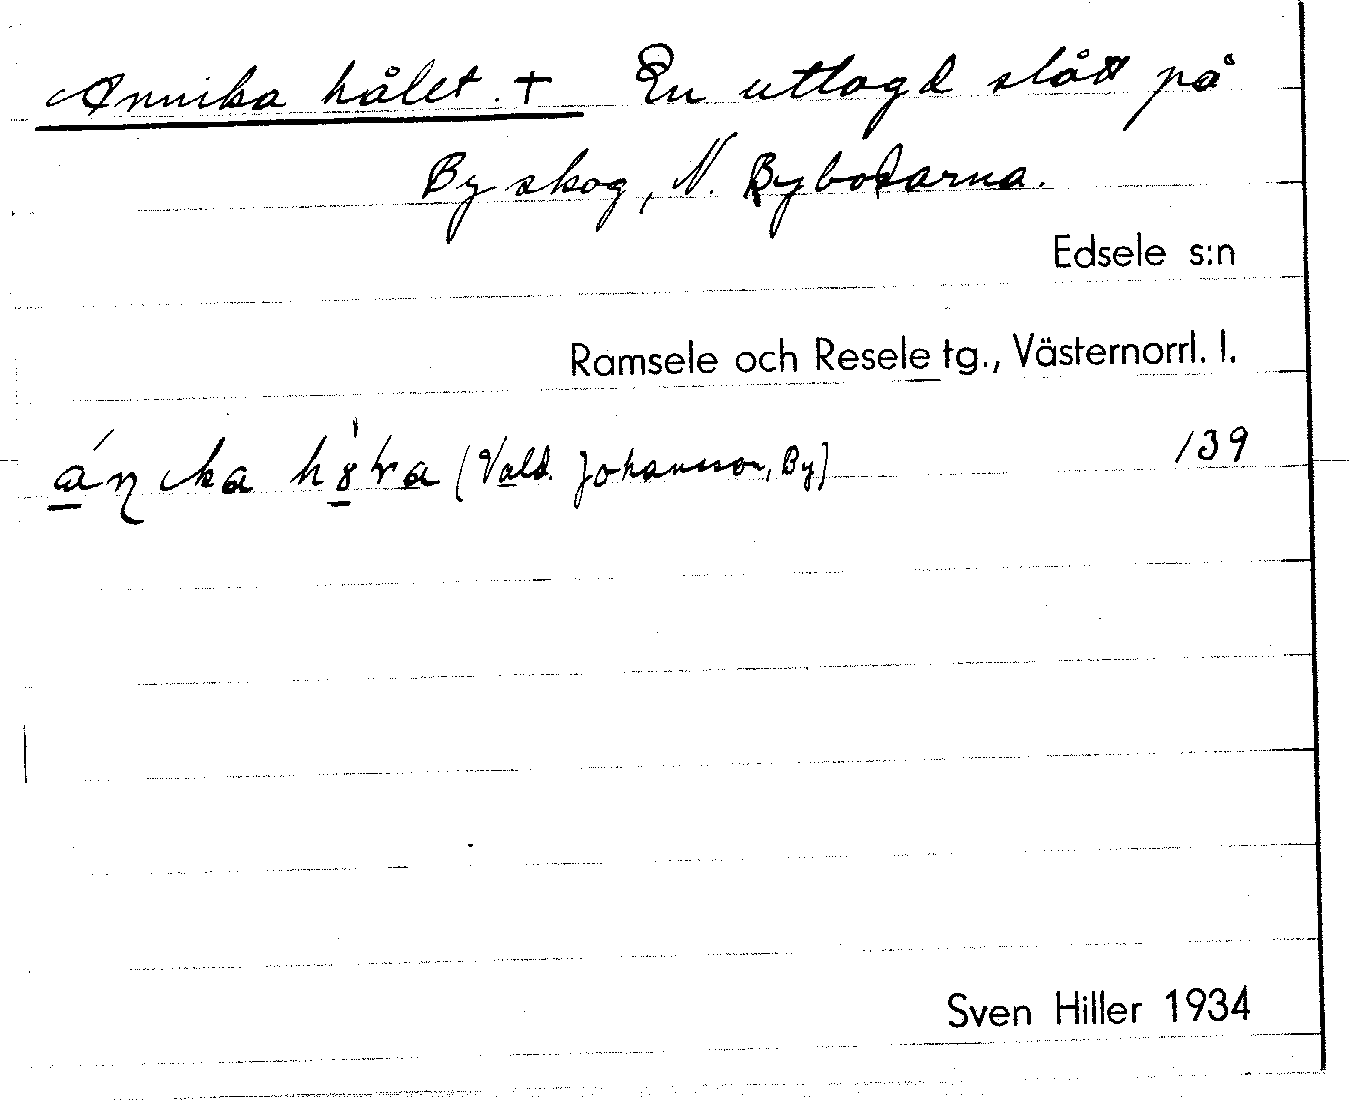 Annika hålet. + En utlagd slått på
By skog, N. Bybodarna.
Edsele s:n
Ramsele och Resele tg., Västernorrl. l.
(Vald. Johansson, By) 139
Sven Hiller 1934